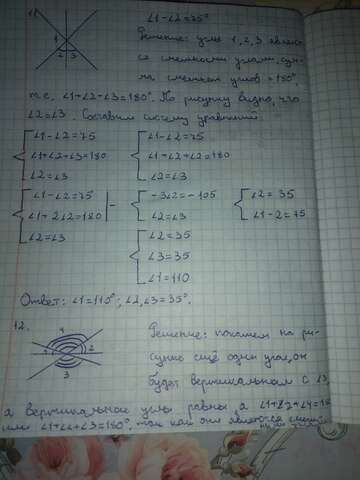 11.
∠1-∠2=75°
Решение: углы 1,2,3 являют
ся смежными углами, сум
ма смежных углов = 180°,
т.е. ∠1+∠2+∠3=180°. По рисунку видно, что
∠2=∠3. Составим систему уравнений
∠1-∠2=75
∠1+∠2+∠3=180
∠2=∠3
∠1-∠2=75
∠1+∠2+∠2=180
∠2=∠3
∠1-∠2=75
∠1+2∠2=180
∠2=∠3
-3∠2=-105
∠2=∠3
∠2=35
∠1-2=75
∠2=35
∠3=35
∠1=110
Ответ: ∠1=110°; ∠2,∠3=35°.
12.
Решение: покажем на ри-
сунке ещё один угол, он
будет вертикальным с ∠3,
а вертикальные углы равны, а ∠1+∠2+∠4=18
или ∠1+∠2+∠3=180°, так как они являются